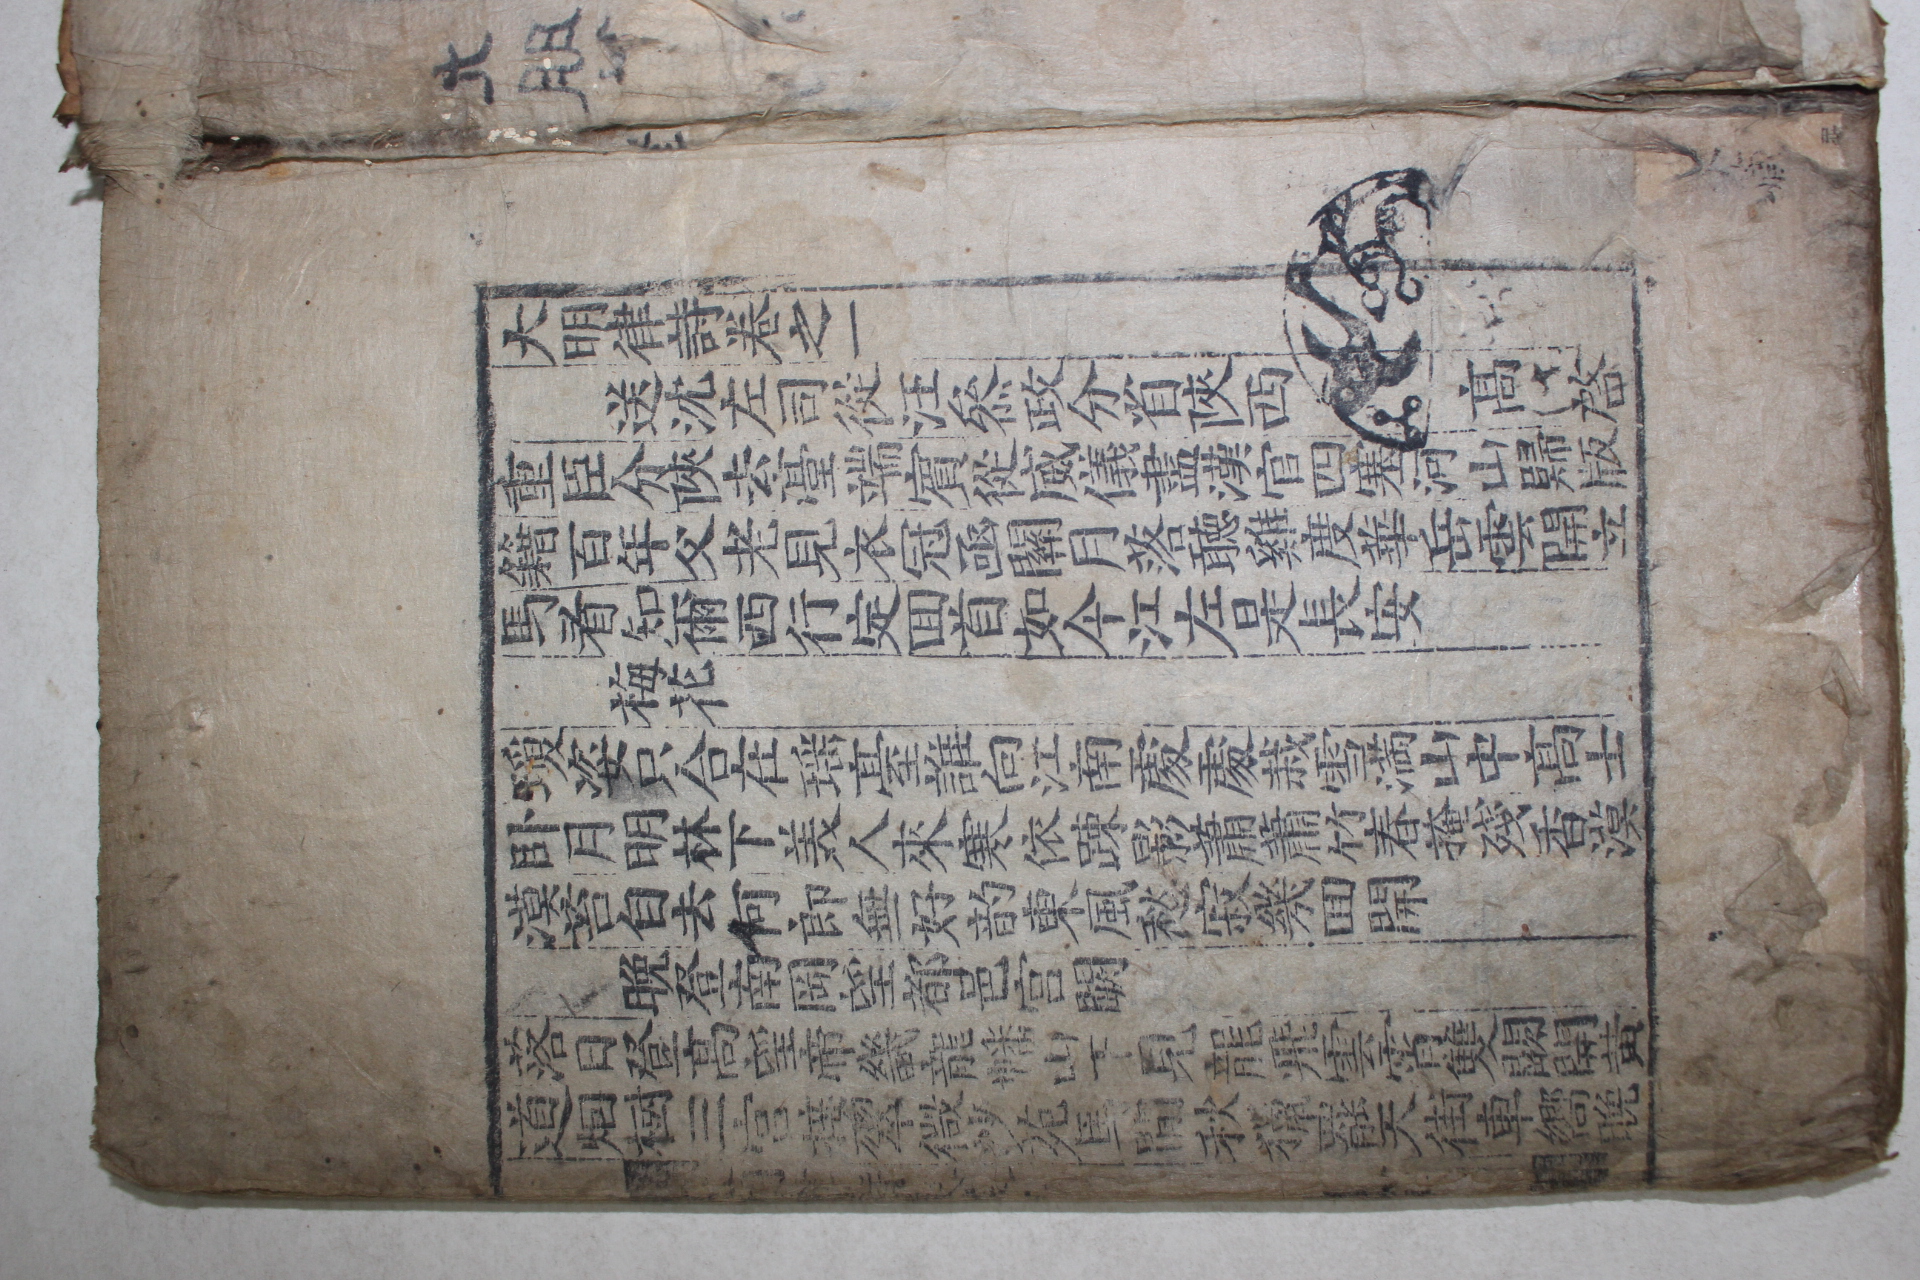 大明律詩卷之一
送沈左司從汪叅政分省陝西 高啓
重臣分陝去臺端賓從威儀盡漢官四塞河山歸版
籍百年父老見衣冠函關月落聽雞度華岳雲開立
馬看知爾西行定回首如今江左是長安
梅花
瓊姿只合在瑶臺誰向江南處處栽雪滿山中高士
臥月明林下美人來寒依踈影蕭蕭竹春掩殘香漠
漠苔自去何郎無好韵東風愁寂幾回開
晩登南岡望都邑宮闕
落日登高望帝畿龍蟠山下見龍飛雲霄雙闕開黃
道烟樹三宮接翠微沙苑馬閒秋獵罷天街車嚮晩
大明